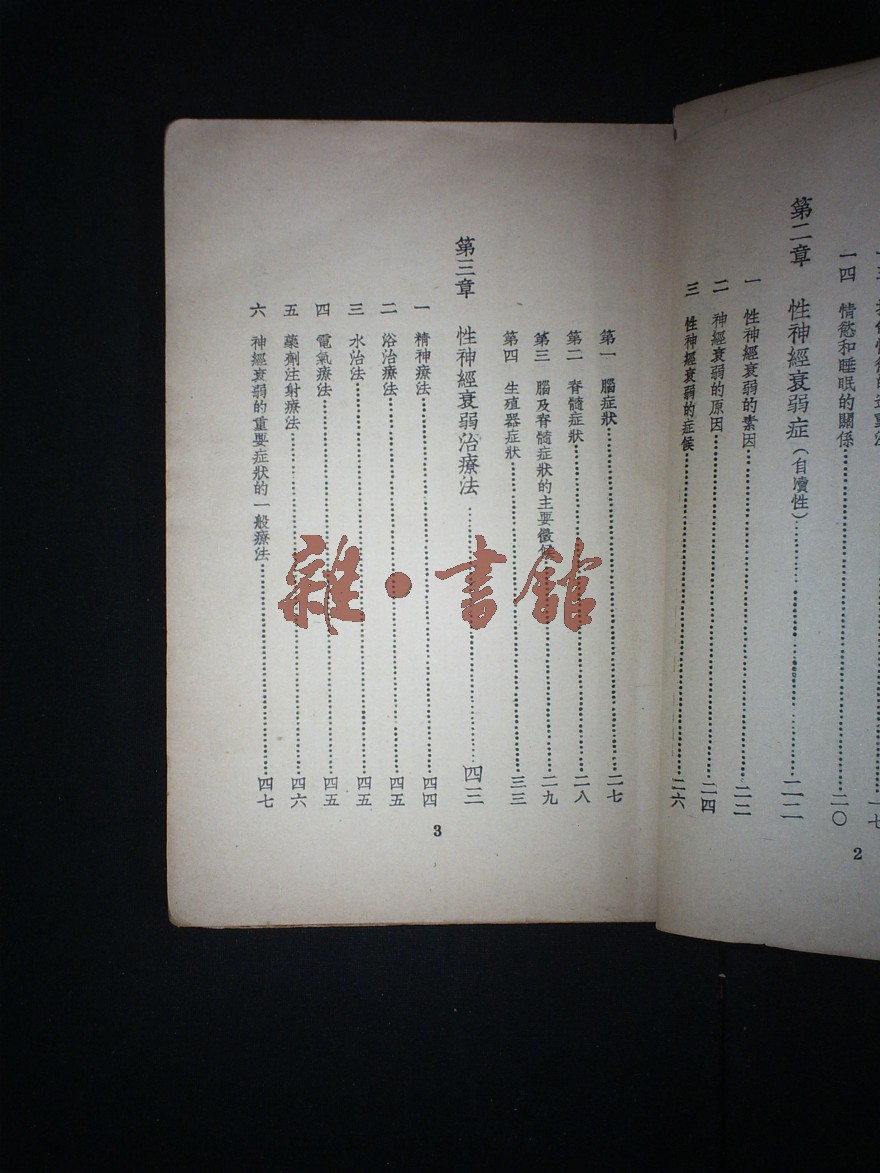 一四 情慾和睡眠的關係 二〇
第二章 性神經衰弱症(自瀆性) 二二
一 性神經衰弱的素因 二二
二 神經衰弱的原因 二四
三 性神經衰弱的症候 二六
2
第一 腦症狀 二七
第二 脊髓症狀 二八
第三 腦及脊髓症狀的主要徵候 二九
第四 生殖器症狀 三三
第三章 性神經衰弱治療法 四三
一 精神療法 四四
二 浴治療法 四五
三 水治法 四五
四 電氣療法 四五
五 藥劑注射療法 四六
六 神經衰弱的重要症狀的一般療法 四七
3
雜·書館